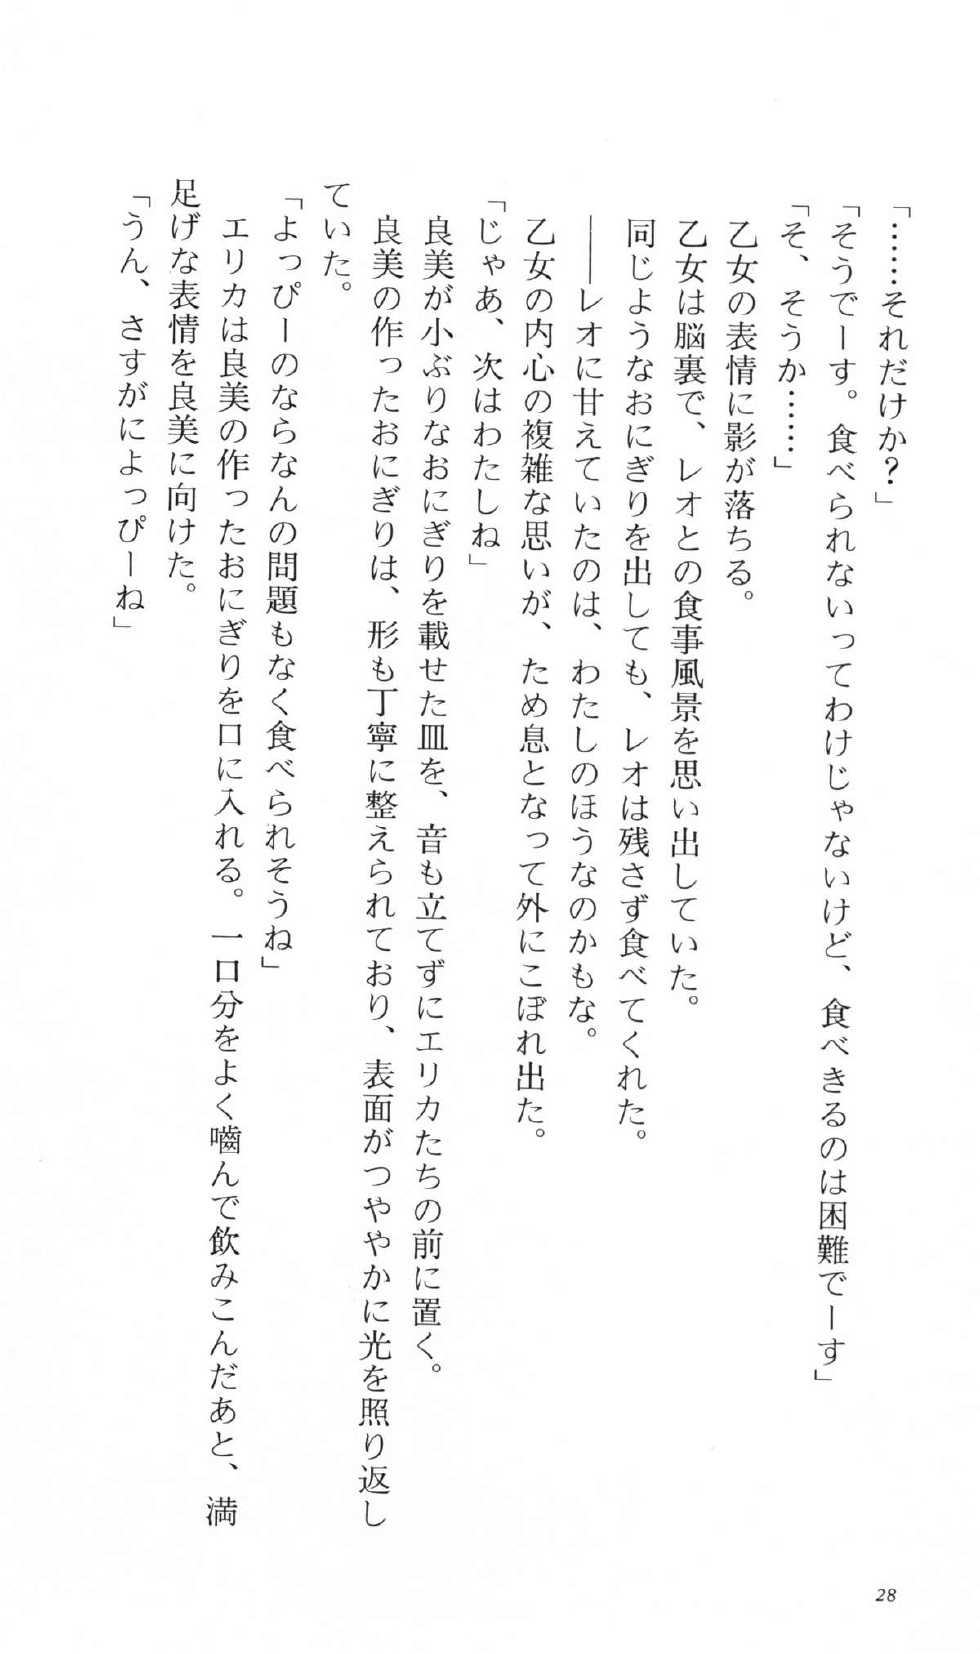 「……それだけか？」
「そうでーす。食べられないってわけじゃないけど、食べきるのは困難でーす」
「そ、そうか……」
乙女の表情に影が落ちる。
乙女は脳裏で、レオとの食事風景を思い出していた。
同じようなおにぎりを出しても、レオは残さず食べてくれた。
――レオに甘えていたのは、わたしのほうなのかもな。
乙女の内心の複雑な思いが、ため息となって外にこぼれ出た。
「じゃあ、次はわたしね」
良美が小ぶりなおにぎりを載せた皿を、音も立てずにエリカたちの前に置く。
良美の作ったおにぎりは、形も丁寧に整えられており、表面がつややかに光を照り返し
ていた。
「よっぴーのならなんの問題もなく食べられそうね」
エリカは良美の作ったおにぎりを口に入れる。一口分をよく嚙んで飲みこんだあと、満
足げな表情を良美に向けた。
「うん、さすがによっぴーね」
28